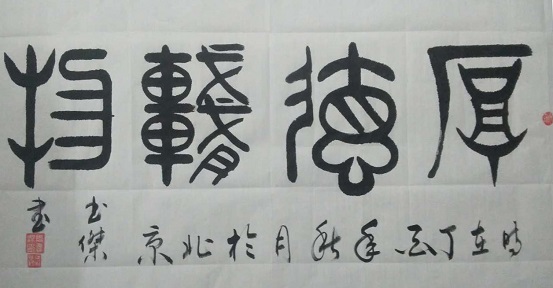 厚德載物
時在丁酉年秋月於北京
傑
書